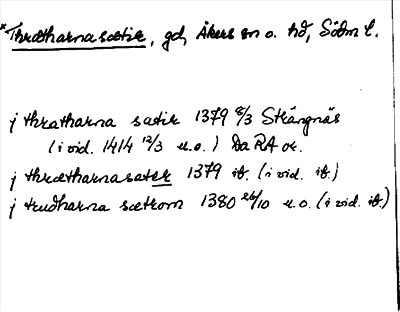 *Thrætharnasætir, gd, Åkers sn o. hd, Södm l.
j thratharna satir 1379 8/3 Strängnäs
(i vid. 1414 12/3 u.o.) Da RA or.
j thrætharnasater 1379 ib. (i vid. ib.)
j trudharna sætrom 1380 26/10 u.o. (i vid. ib.)